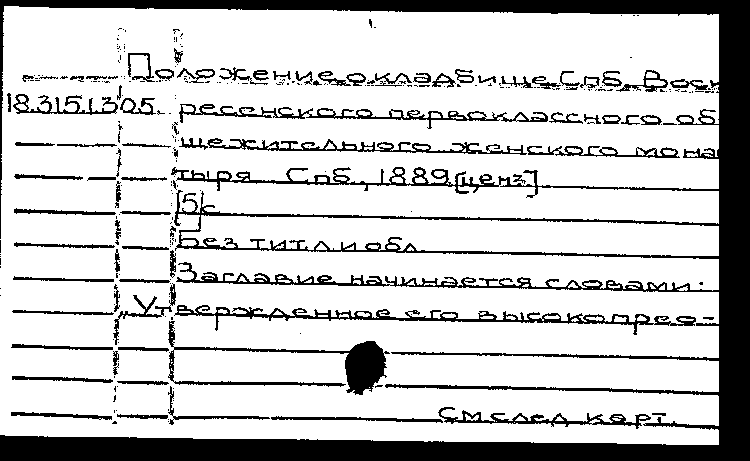 Положение о кладбище Спб. Воск
18.315.1.305. ресенского первоклассного об-
щежительного женского мона
тыря Спб., 1889 [ценз].
[5]с
Без тит. л и обл.
Заглавие начинается словами:
„Утвержденное его высокопрео-
См след карт.